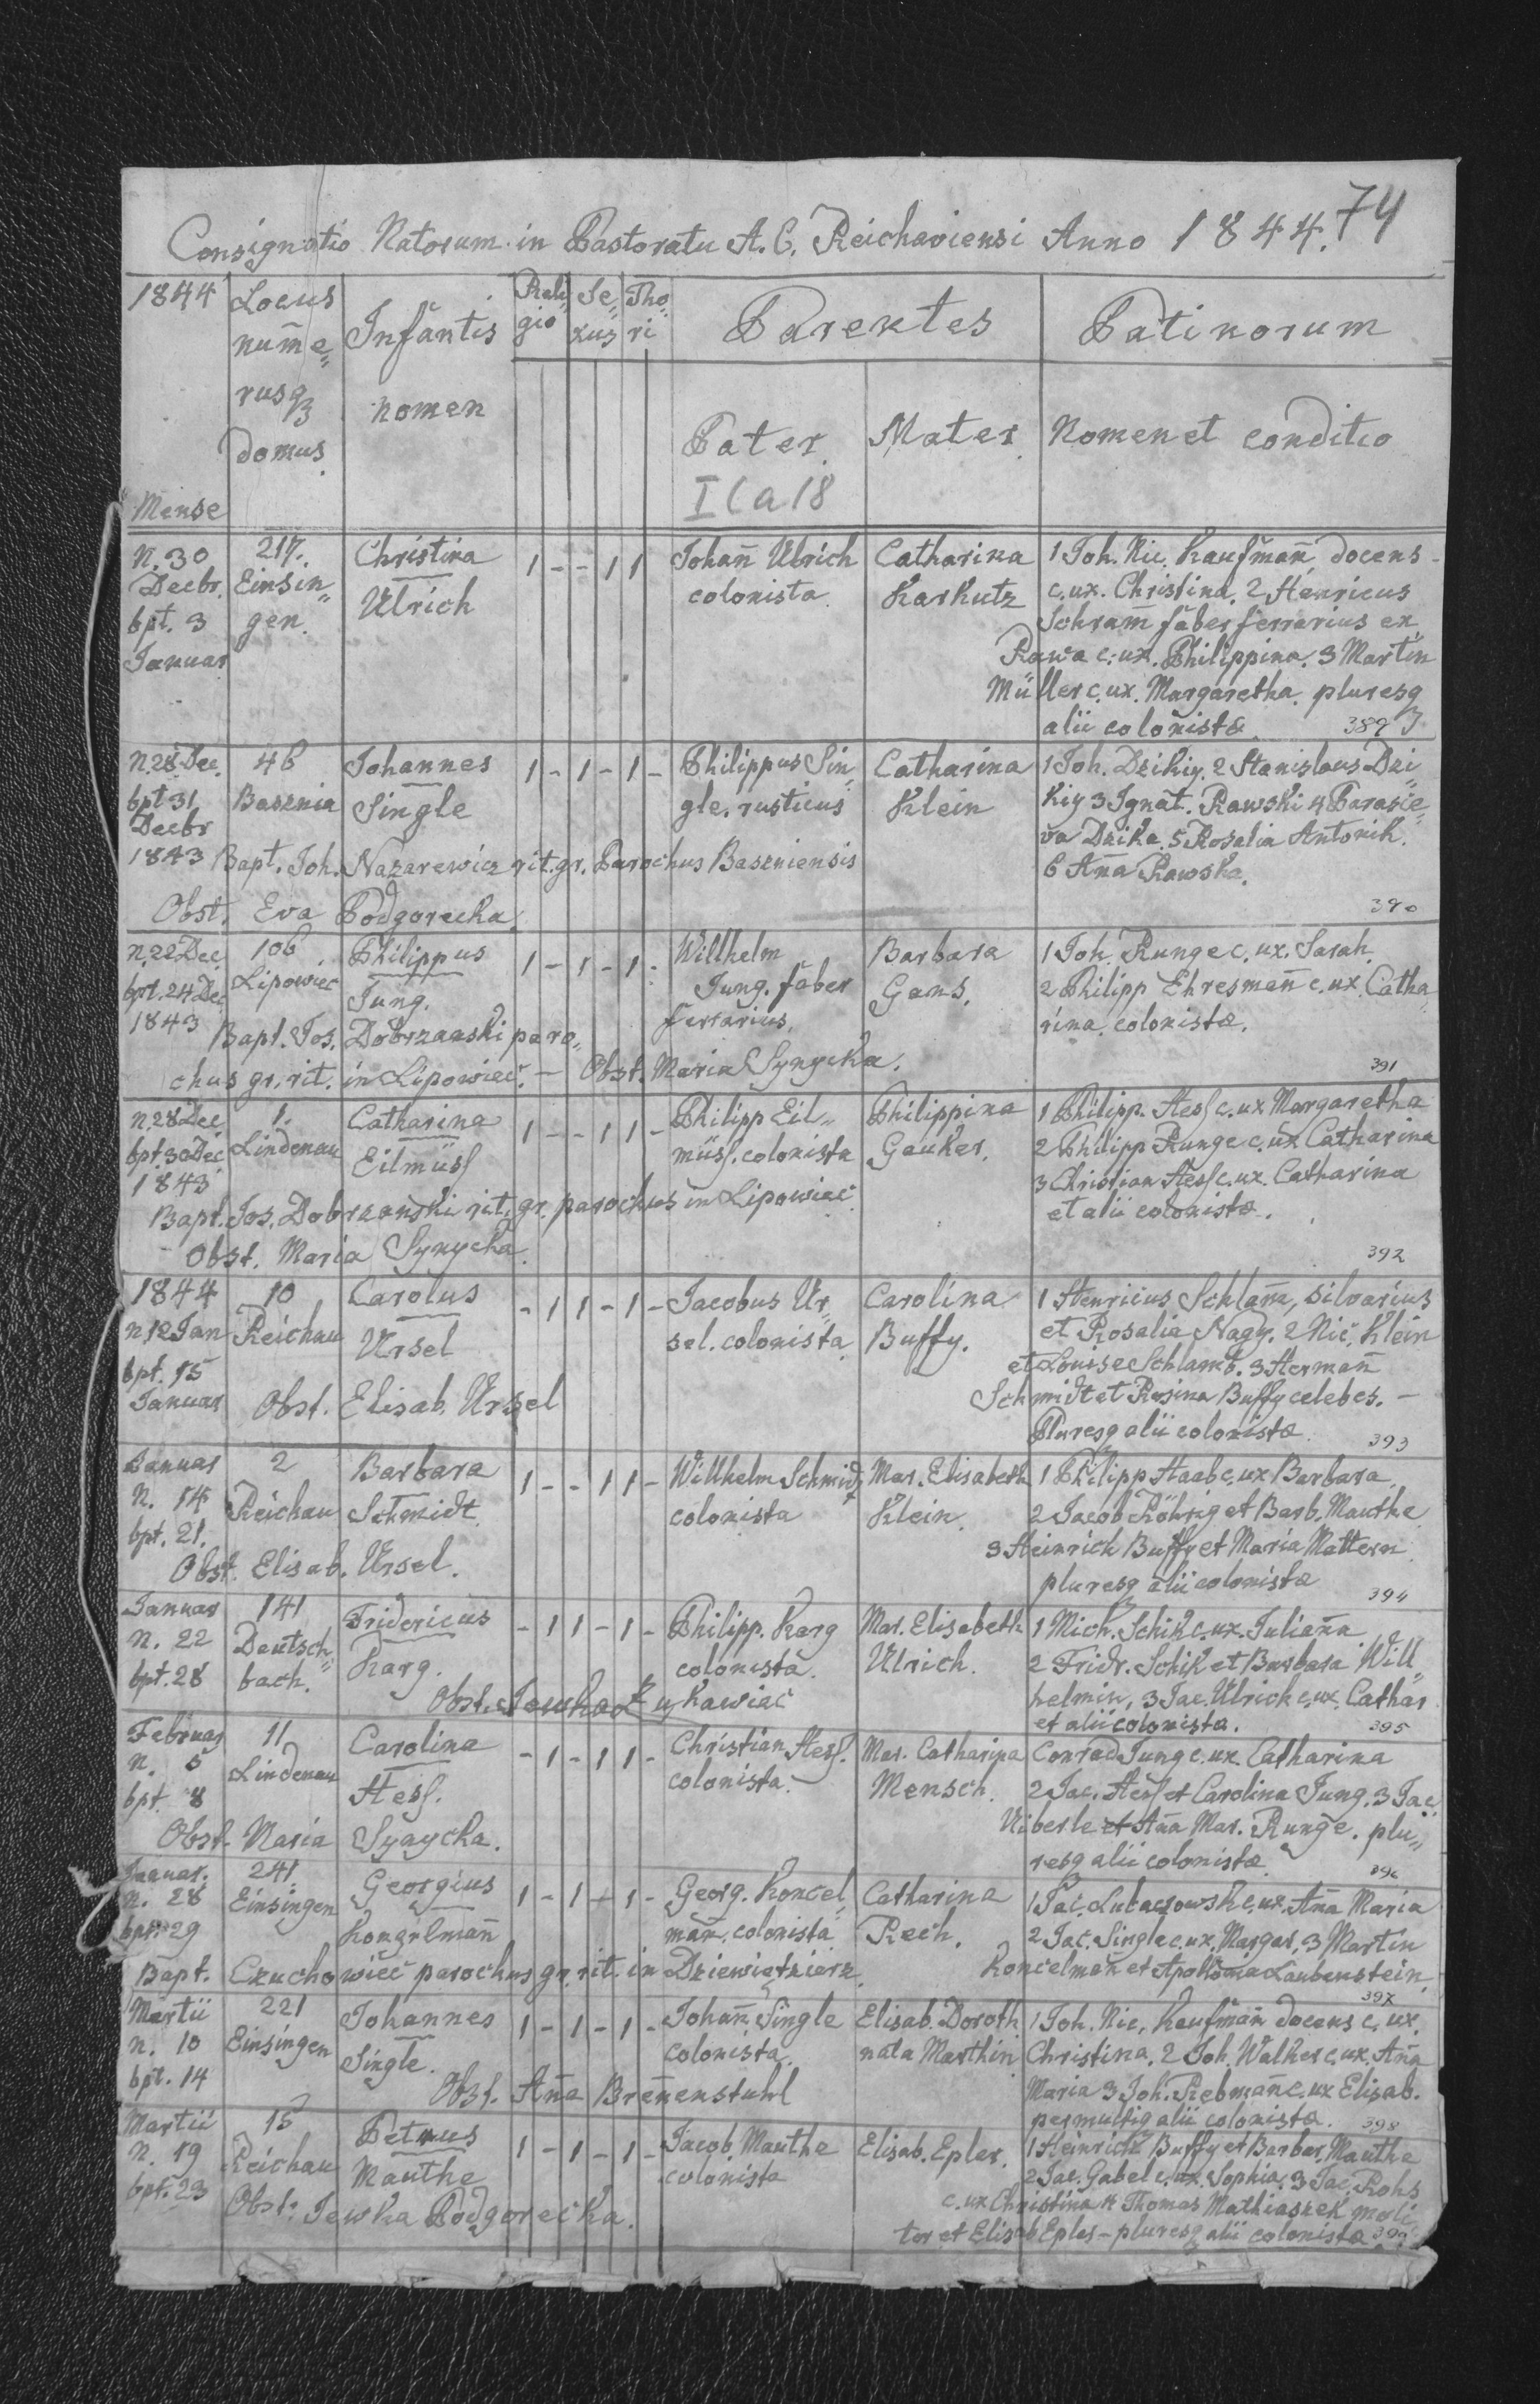 74
Consignatio Natorum in Pastoratu A. C. Reichaviensi Anno 1844.
1844
Mense
Locus
num̄e„
rusq
domus.
Infantis
nomen
Reli„
gio
Se„
xus
Tho„
ri
Parentes
Patinorum
Pater
Mater
Nomen et conditio
I (a 18
N. 30
Decbr.
bpt. 3
Januar
217.
Einsin„
gen.
Christina
Ulrich
1 - - 1 1
Johan̄ Ulrich
colonista
Catharina
Karkutz
1 Joh. Nic. Kaufman̄ docens
c. ux. Christina. 2 Henricus
Schram̄ faber ferrarius ex
Rawa c. ux. Philippina. 3 Martin
Müller c. ux. Margaretha. pluresq
alii colonistæ.
389
N. 28 Dec.
bpt 31
Decbr
1843
46
Basznia
Johannes
Single
1 - 1 - 1 -
Philippus Sin„
gle. rusticus
Catharina
Klein
1 Joh. Dzikiy. 2 Stanislaus Dzi„
kiy 3 Ignat. Rawski 4 Parasce„
va Dzika. 5 Rosalia Antonik.
6 An̄a Rawska.
Bapt. Joh. Nazarewicz rit. gr. Parochus Baszniensis
Obst. Eva Podgorecka.
390
N. 22 Dec
bpt. 24 Dec
1843
106
Lipowiec
Philippus
Jung.
1 - 1 - 1 -
Willhelm
Jung. faber
ferrarius.
Barbara
Gans.
1 Joh. Runge c. ux. Sarah.
2 Philipp Ehresman̄ c. ux. Catha
rina. colonistæ.
Bapt. Jos. Dobrzanski paro„
chus gr. rit. in Lipowiec. - Obst. Maria Synycka.
391
n. 28 Dec
bpt. 30 Dec
1843
1.
Lindenau
Catharina
Eilmüss
1 - - 1 1 -
Philipp Eil„
müss. colonista
Philippina
Gauker.
1 Philipp. Hess c. ux Margaretha
2 Philipp Runge c. ux Catharina
3 Christian Hess c. ux. Catharina
et alii colonistæ.
Bapt. Jos. Dobrzanski rit. gr. parochus in Lipowiec
Obst. Maria Synycka.
392
1844
n 12 Jan
bpt. 15
Januar
10
Reichau
Carolus
Ursel
- 1 1 - 1 -
Jacobus Ur„
sel. colonista
Carolina
Buffy.
1 Henricus Schlam̄, silvarius
et Rosalia Nagy. 2 Nic. Klein
et Louise Schlamb. 3 Herman̄
Schmidt et Rosina Buffy celebes. -
Pluresq alii colonistæ.
Obst. Elisab. Ursel
393
Januar
N. 14
bpt. 21.
2
Reichau
Barbara
Schmidt
1 - - 1 1 -
Willhelm Schmidt
colonista
Mar. Elisabeth
Klein.
1 Philipp Haab c. ux Barbara
2 Jacob Röhrig et Barb. Mauthe
3 Heinrich Buffy et Maria Mattern
pluresq alii colonistæ
Obst. Elisab. Ursel.
394
Januar
n. 22
bpt. 28
141
Deutsch„
bach.
Fridericus
Karg.
- 1 1 - 1 -
Philipp. Karg
colonista.
Mar. Elisabeth
Ulrich.
1 Mich. Schik c. ux. Julian̄a
2 Fridr. Schik et Barbara Will„
helmin, 3 Jac. Ulrich c. ux. Cathar
et alii colonista.
395
Februar
n. 5
bpt. 8
11
Lindenau
Carolina
Hess.
- 1 - 1 1 -
Christian Hess.
colonista.
Mar. Catharina
Mensch.
Conrad Jung c. ux. Catharina
2 Jac. Hess et Carolina Jung. 3 Jac.
Uiberle et An̄a Mar. Runge. plu„
resq alii colonistæ.
Obst. Maria Synycka.
396
Januar.
n. 28
bpt. 29
241
Einsingen
Georgius
Konzelman̄
1 - 1 - 1 -
Georg. Koncel„
man̄. colonista
Catharina
Rech.
2 Jac. Single c. ux. Margar, 3 Martin
Koncelman̄ et Apollonia Laubenstein
Bapt. Czuchowiec parochus gr. rit. in Dziewietzierz
397
Martii
n. 10
bpt. 14
221
Einsingen
Johannes
Single.
1 - 1 - 1 -
Johan̄ Single
colonista.
Elisab. Doroth
nata Marthin
1 Joh. Nic. Kaufman̄ docens c. ux.
Christina. 2 Joh. Walker c. ux. An̄a
Maria 3 Joh. Rebman̄ c. ux Elisab.
permultiq alii colonistæ.
Obst. An̄a Bren̄enstuhl
398
Martii
n. 19
bpt. 23
15
Reichau
Petrus
Mauthe
1 - 1 - 1 -
Jacob. Mauthe
colonista
Elisab. Epler.
1 Heinrich Buffy et Barbar. Mauthe
2 Jac. Gabel c. ux. Sophia. 3 Jac. Rohs
c. ux Christina 4 Thomas Mathiaszek moli„
tor et Elisab Epler - pluresq alii colonistæ
Obst. Jewka Podgorecka.
399